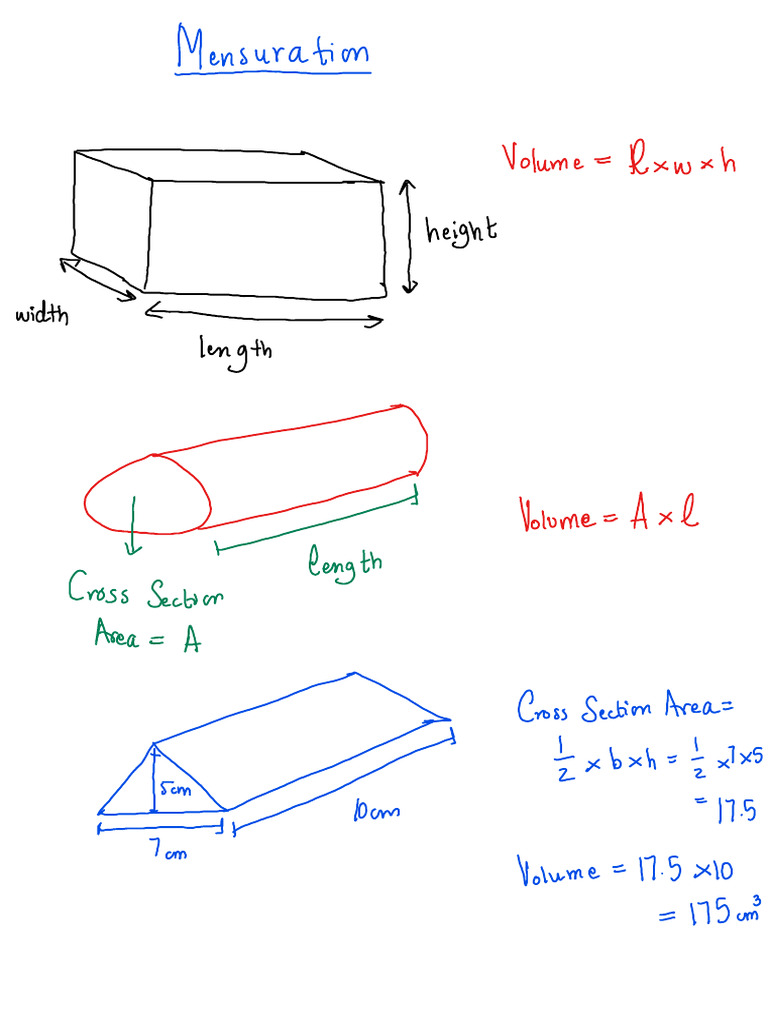 Mensuration
Volume = l × w × h
height
width
length
Volume = A × l
length
Cross Section
Area = A
Cross Section Area =
1/2 × b × h = 1/2 × 7 × 5
= 17.5
5cm
10cm
7cm
Volume = 17.5 × 10
= 175 cm³